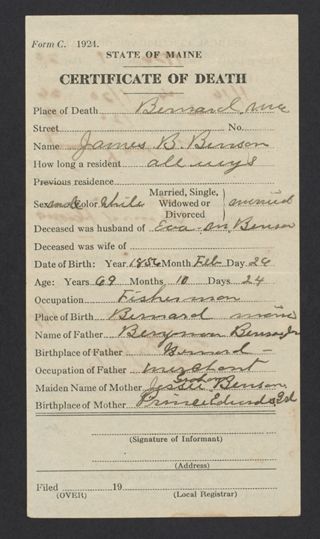 Form C. 1924.
STATE OF MAINE
CERTIFICATE OF DEATH
Place of Death Bernard, Me
Street No.
Name James B. Benson
How long a resident all ways
Previous residence
Sex male Color White Married, Single, Widowed or Divorced married
Deceased was husband of Eva M. Benson
Deceased was wife of
Date of Birth: Year 1856 Month Feb Day 26
Age: Years 69 Months 10 Days 24
Occupation Fisherman
Place of Birth Bernard Maine
Name of Father Benson
Birthplace of Father Bernard
Occupation of Father merchant
Maiden Name of Mother Jessie Benson
Birthplace of Mother Prince Edwards Isl
(Signature of Informant)
(Address)
Filed 19
(OVER) (Local Registrar)